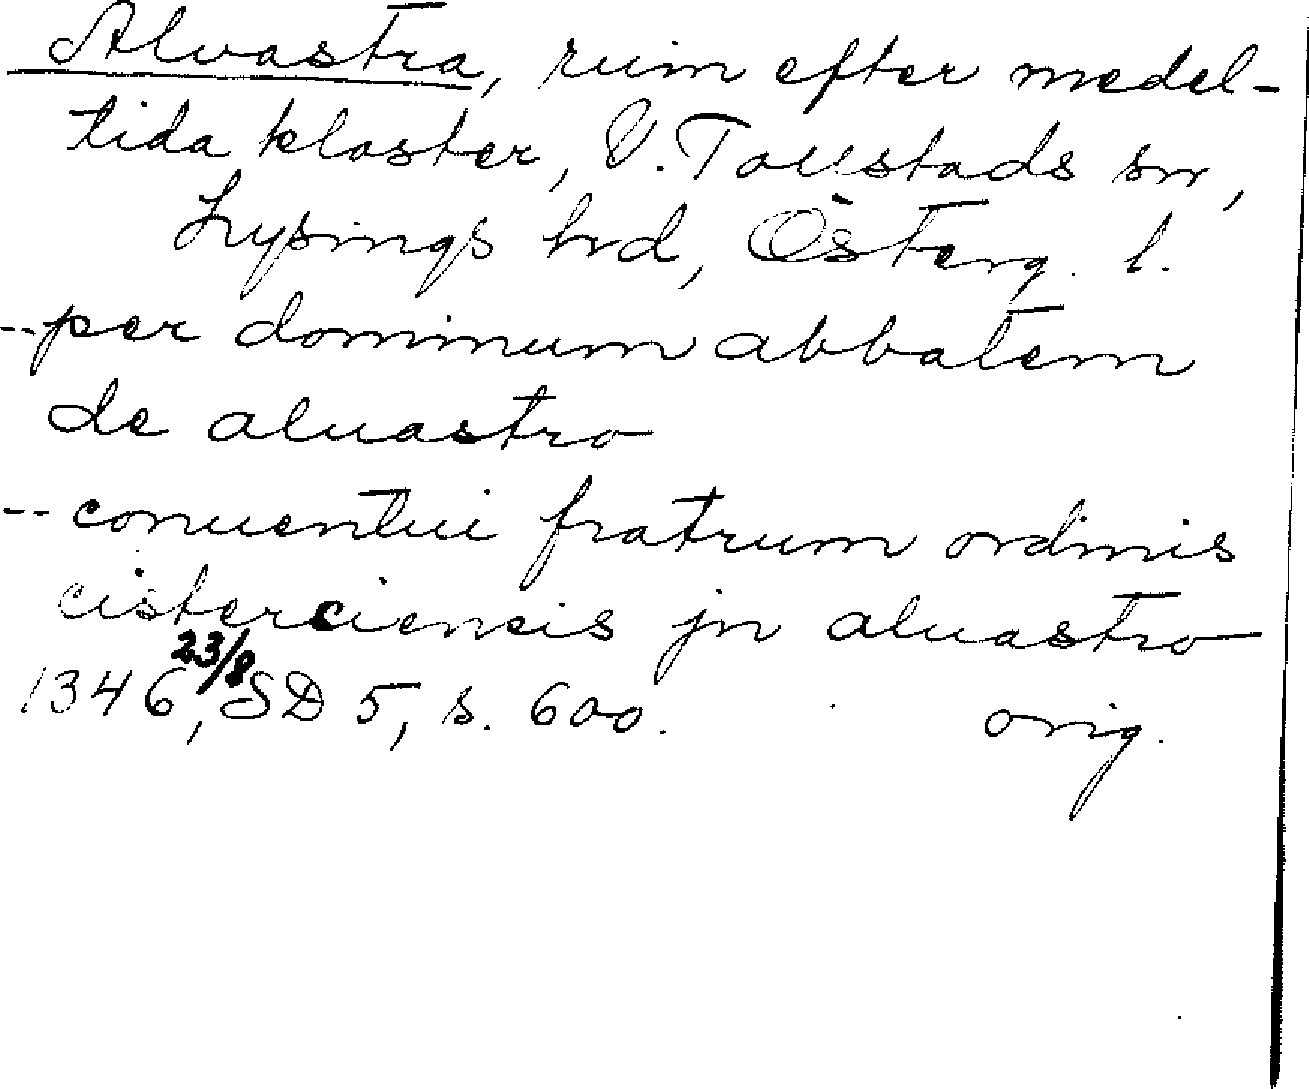 Alvastra, ruin efter medel-
tida kloster, V. Tollstads sn,
Lysings hrd, Österg. l.
-- per dominum abbatem
de aluastro
-- conuentui fratrum ordinis
cisterciencis jn aluastro
1346 23/8, SD 5, s. 600. orig.